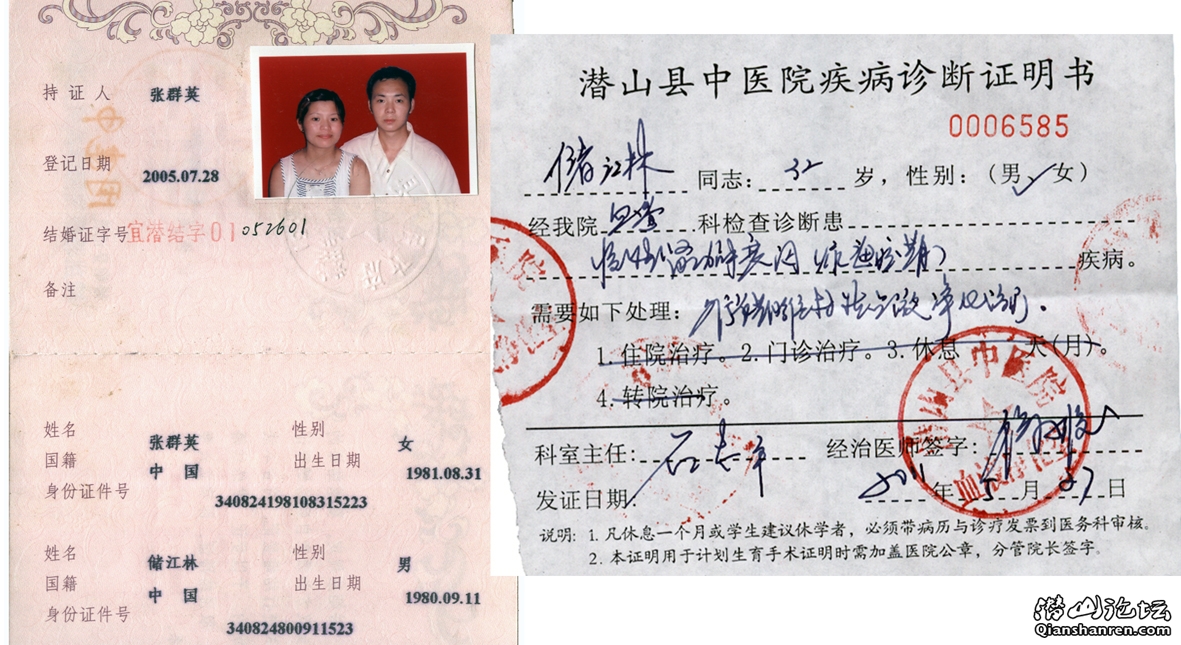 持证人 张群英
登记日期 2005.07.28
结婚证字号 宜潜结字01052601
备注
姓名 张群英 性别 女
国籍 中国 出生日期 1981.08.31
身份证件号 340824198108315223
姓名 储江林 性别 男
国籍 中国 出生日期 1980.09.11
身份证件号 340824800911523
潜山县中医院疾病诊断证明书
0006585
储江林 同志：32岁，性别：（男✓女）
经我院 科检查诊断患
疾病。
需要如下处理：
1.住院治疗。2.门诊治疗。3.休息 天(月)。
4.转院治疗。
科室主任： 经治医师签字：
发证日期： 年5月27日
说明：1.凡休息一个月或学生建议休学者，必须带病历与诊疗发票到医务科审核。
2.本证明用于计划生育手术证明时需加盖医院公章，分管院长签字。
潜山县中医院
潜山论坛
Qianshanren.com